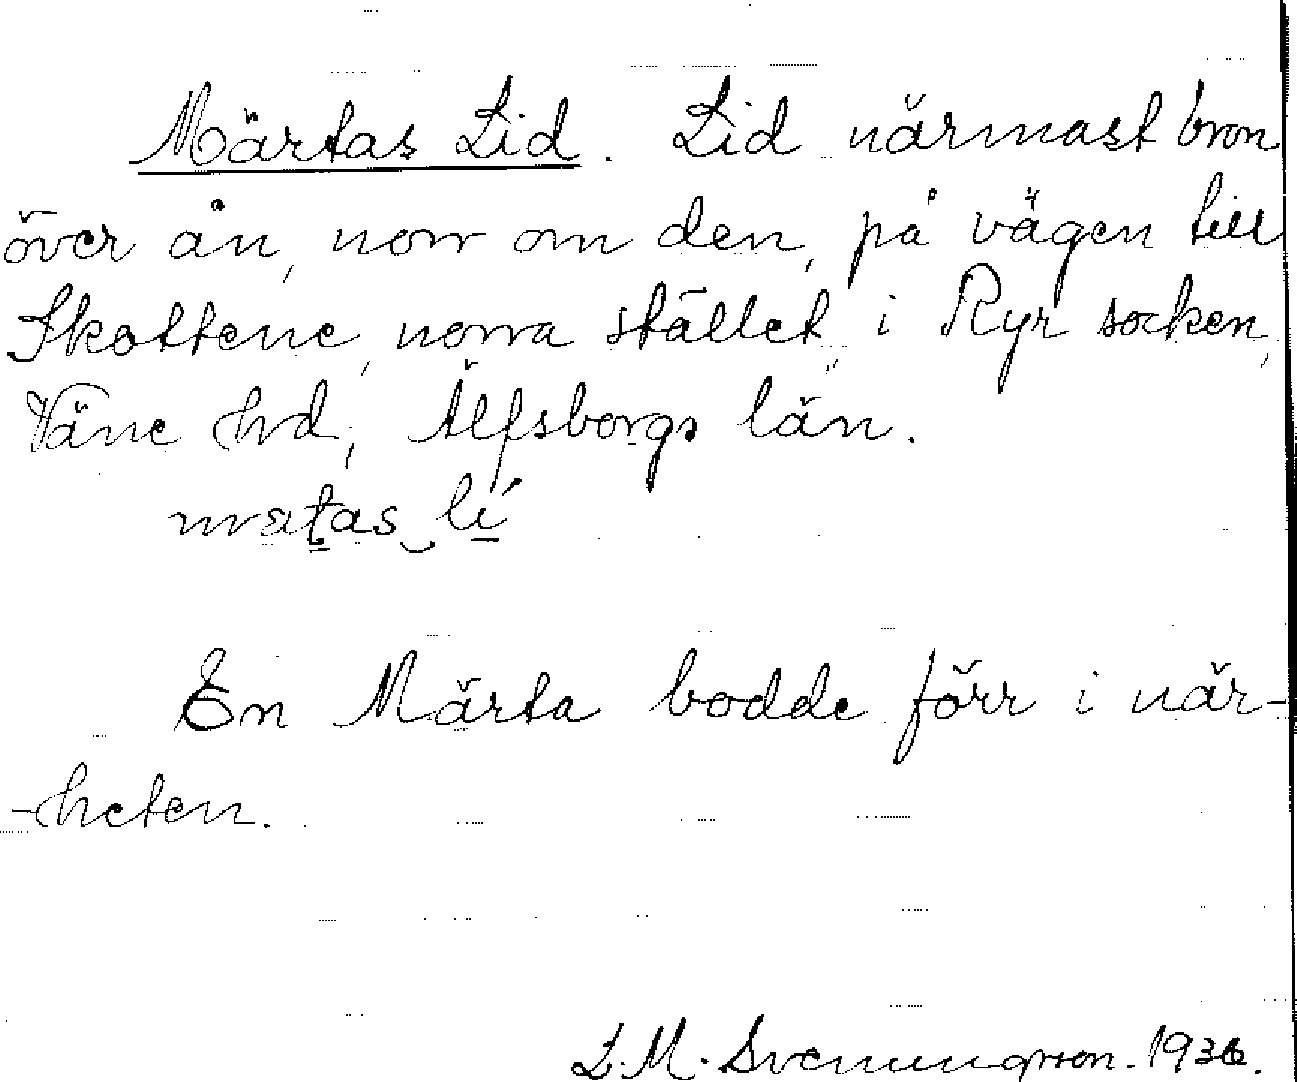 Märtas Lid. Lid närmast bron
över ån, norr om den, på vägen till
Skottene, norra stället, i Ryr socken,
Väne hd, Älfsborgs län.
En Märta bodde förr i när-
-heten.
L. M. Svenungsson. 1936.